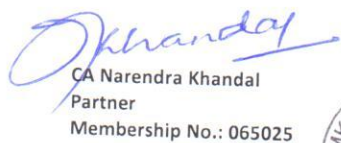 Khandal
CA Narendra Khandal
Partner
Membership No.: 065025